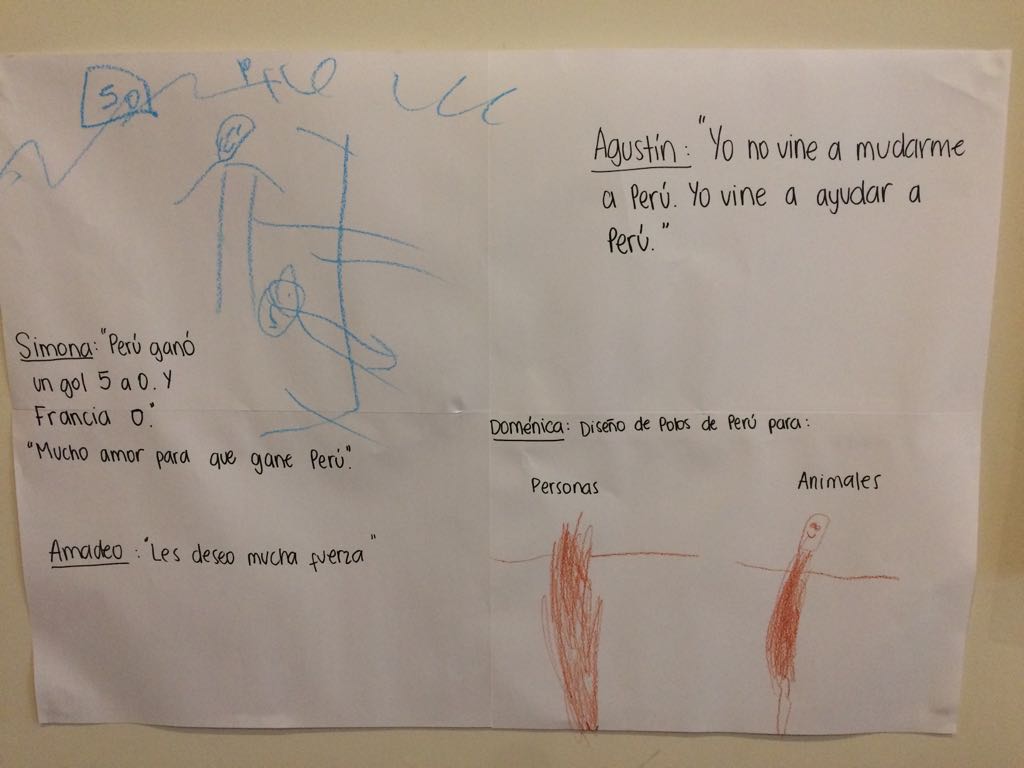 5.0
Agustín: "Yo no vine a mudarme
a Perú. Yo vine a ayudar a
Perú."
Simona: "Perú ganó
un gol 5 a 0. Y
Francia 0".
"Mucho amor para que gane Perú".
Amadeo: "Les deseo mucha fuerza"
Doménica: Diseño de Polos de Perú para:
Personas
Animales